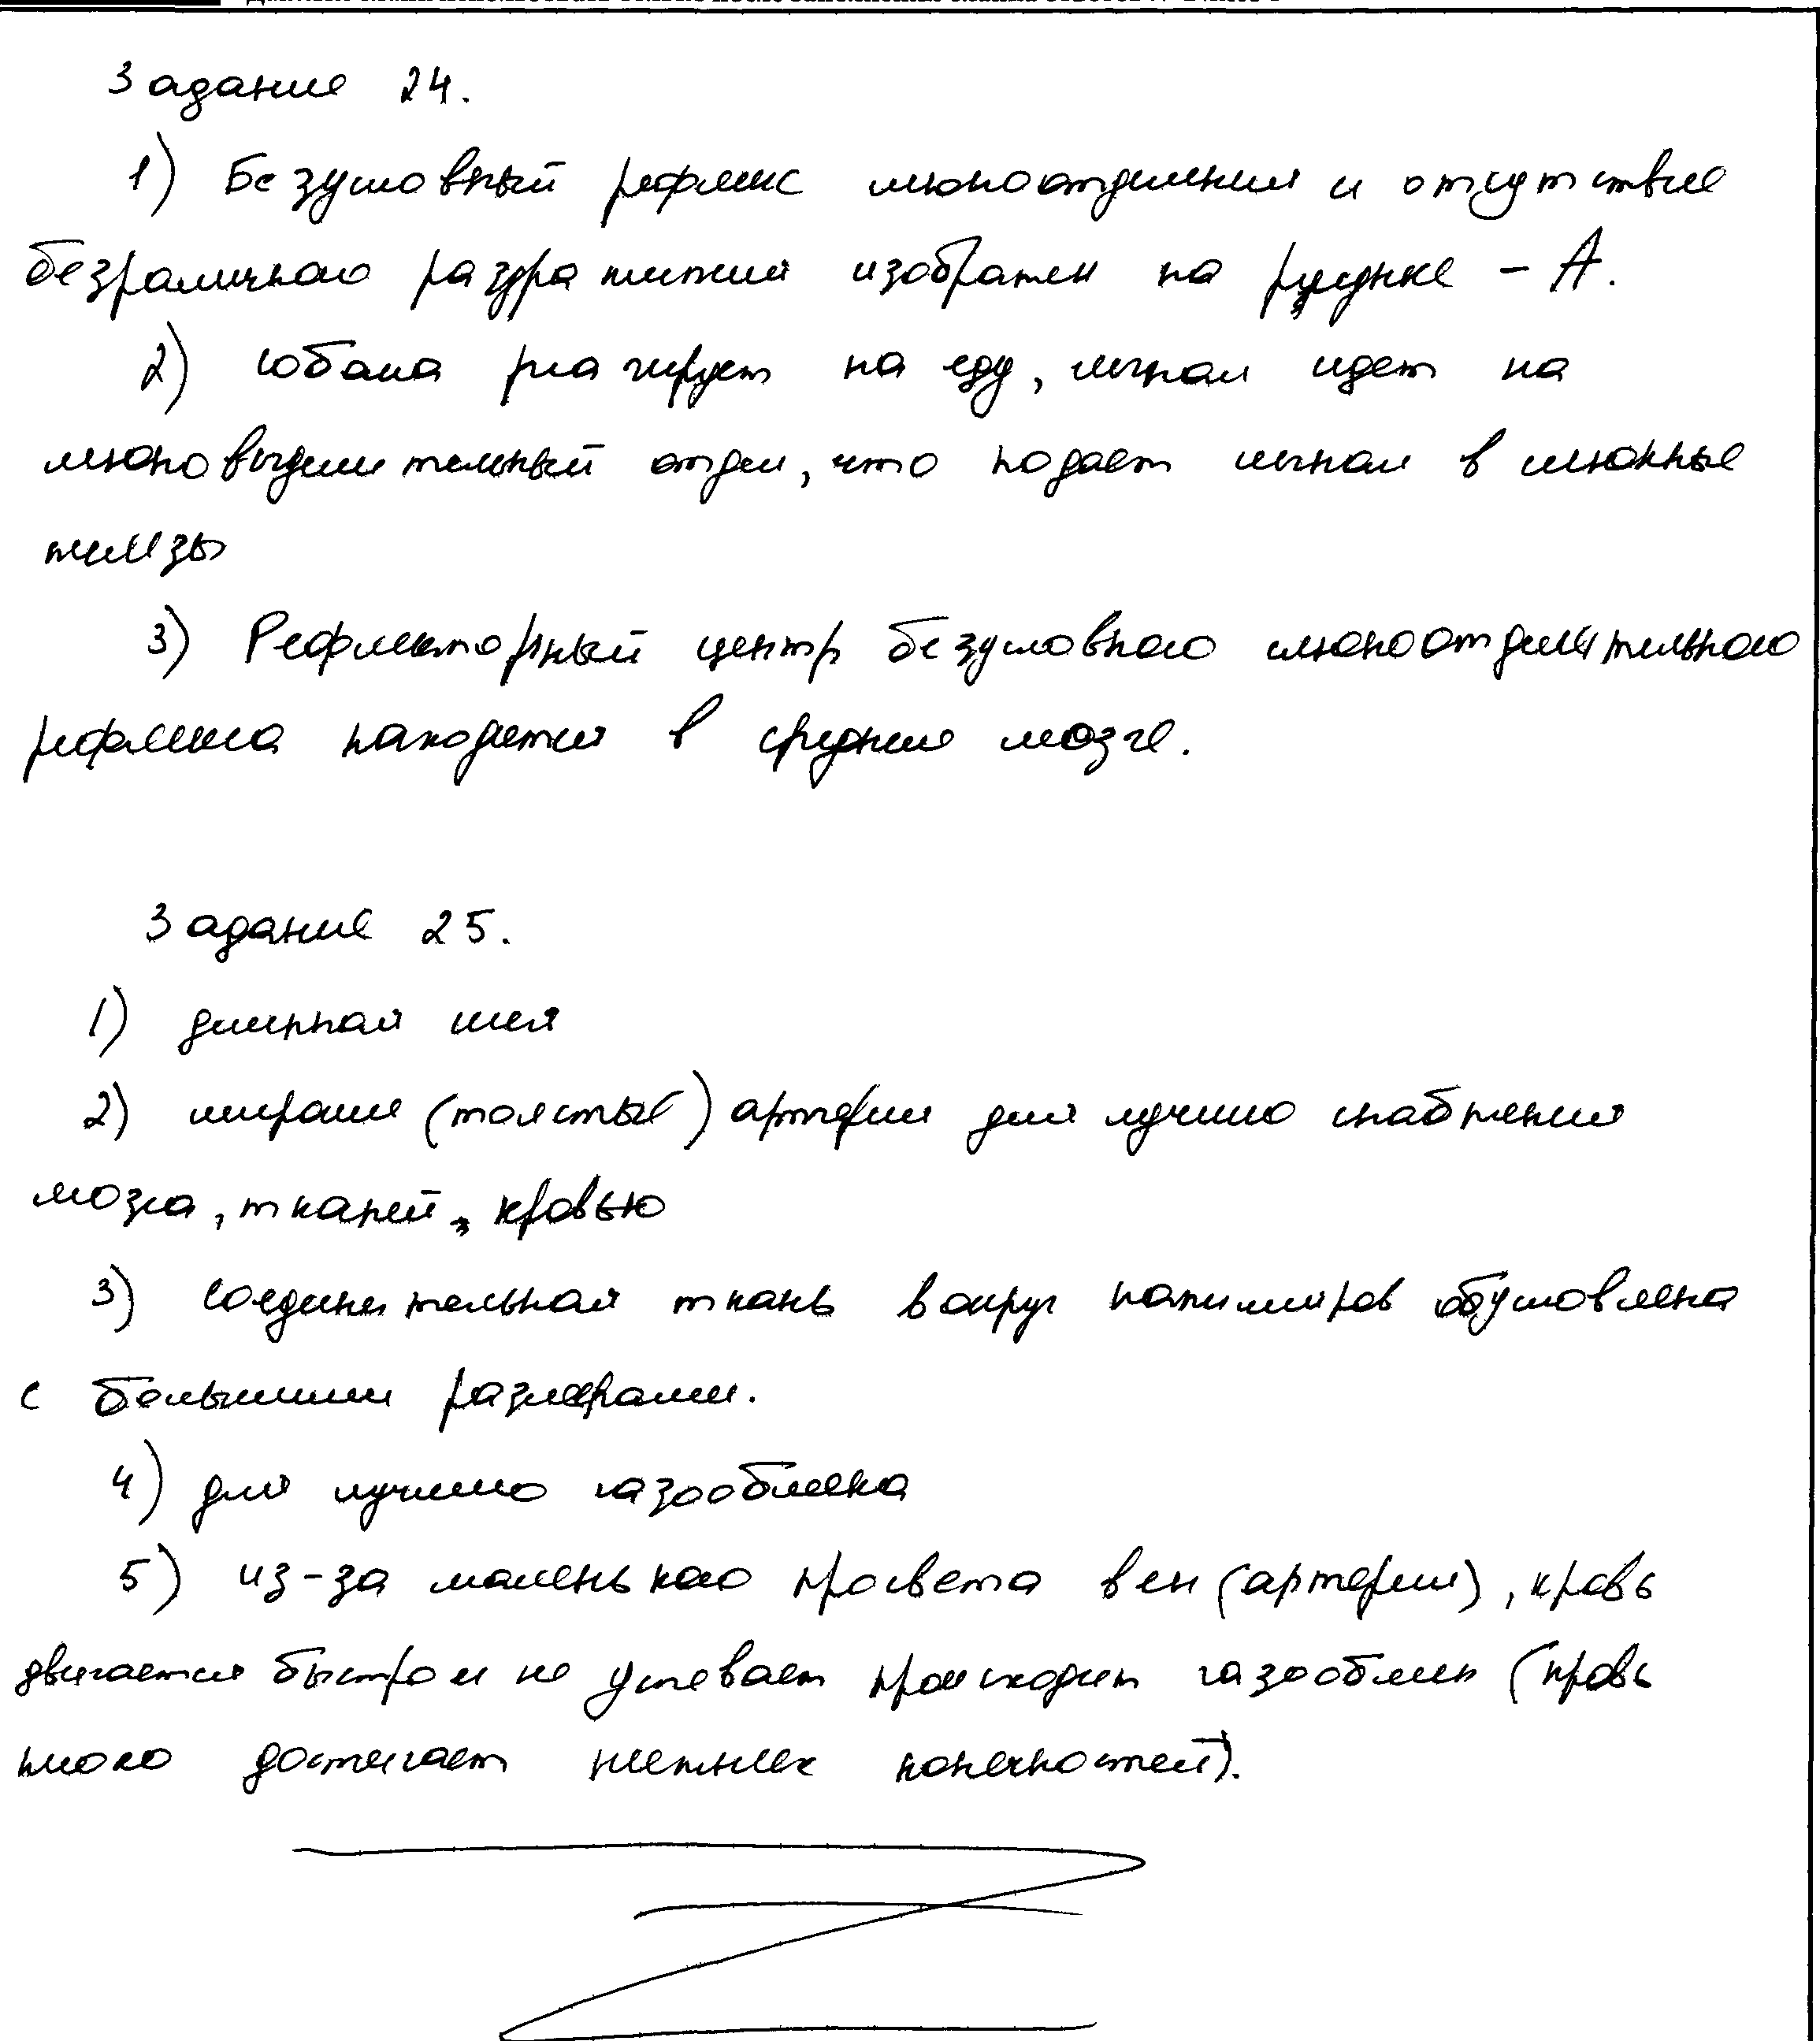 Задание 24.
1) Безусловный рефлекс слюноотделения и отсутствие
безразличного раздражителя изображен на рисунке – А.
2) собака реагирует на еду, сигнал идет на
слюновыделительный отдел, что подает сигнал в слюнные
железы
3) Рефлекторный центр безусловного слюноотделительного
рефлекса находится в среднем мозге.
Задание 25.
1) длинная шея
2) широкие (толстые) артерии для лучшего снабжения
мозга, тканей, кровью
3) Соединительная ткань вокруг капилляров обусловлена
с большими размерами.
4) для лучшего газообмена
5) из-за маленького просвета вен (артерии), кровь
двигается быстро и не успевает происходит газообмен (кровь
плохо достигает нижних конечностей).